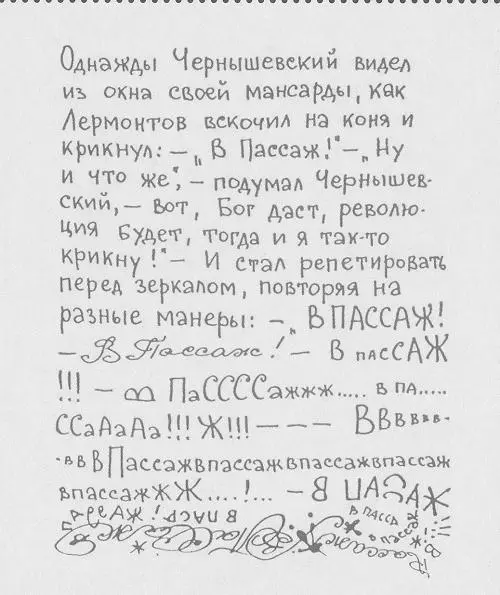 Однажды Чернышевский видел
из окна своей мансарды, как
Лермонтов вскочил на коня и
крикнул: – „В Пассаж!" – „Ну
и что же", – подумал Чернышев-
ский, – вот, Бог даст, револю-
ция будет, тогда и я так-то
крикну!" – И стал репетировать
перед зеркалом, повторяя на
разные манеры: – „ВПАССАЖ!
– В Пассаж! – В пасСАЖ
!!! – В ПаССССажжж..... в па.....
ССаАаАа!!! Ж!!! – – – ВВвввв-
-ввВПассажвпассажвпассажвпассаж
впассажЖЖ....!... – В